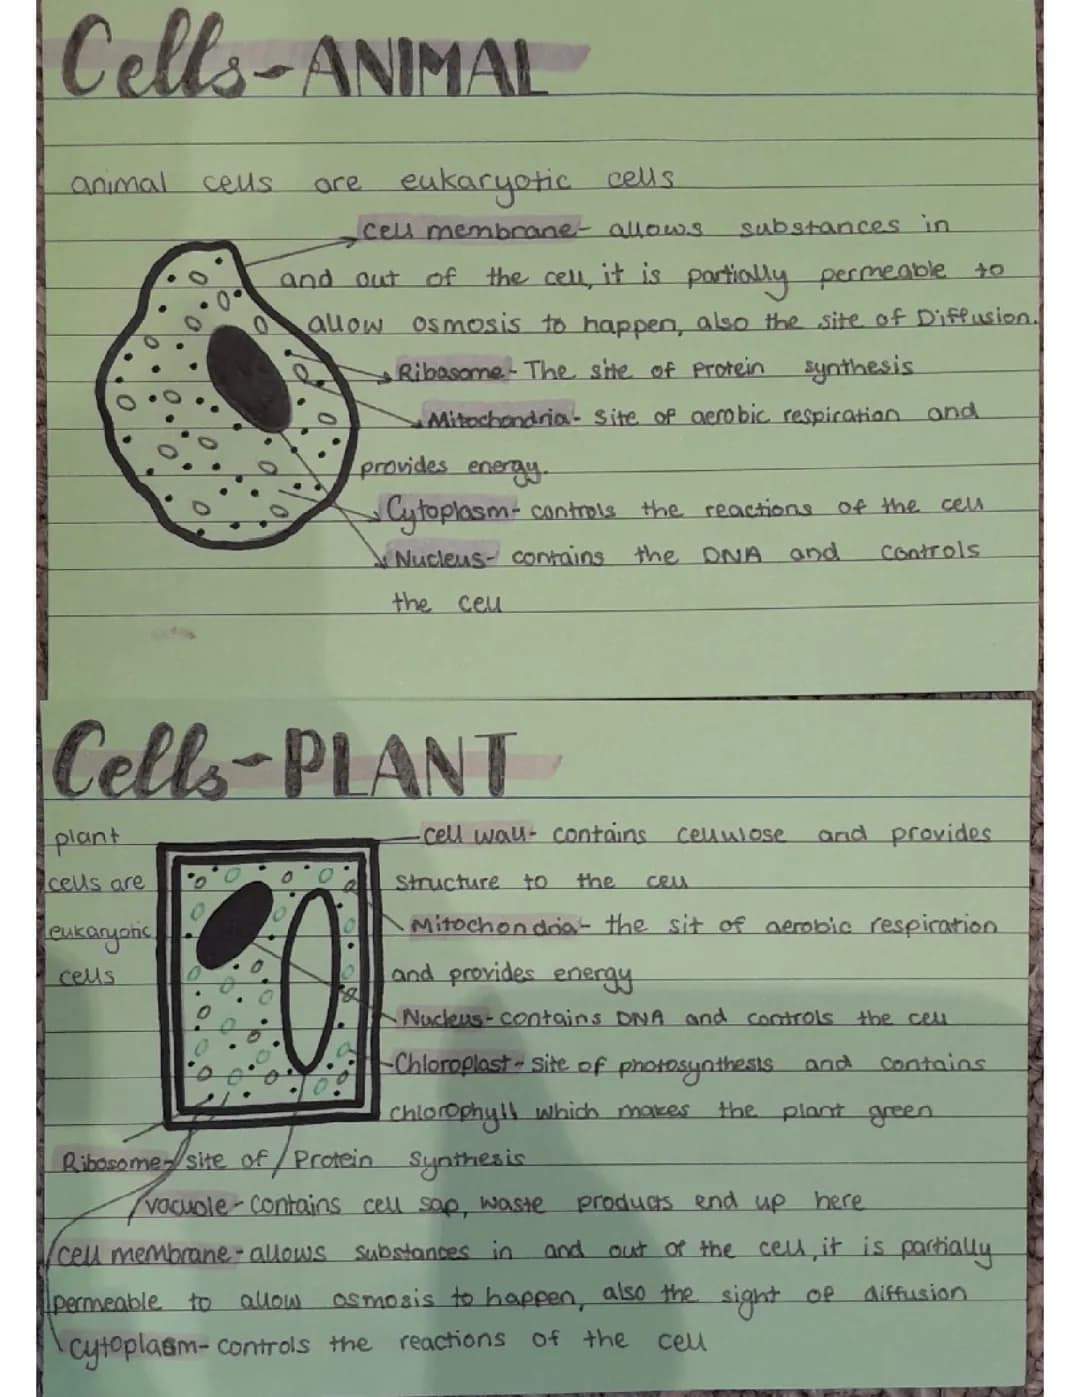 Cells-ANIMAL
animal cells are eukaryotic cells
cell membrane- allows substances in
and out of the cell, it is partially permeable to
allow osmosis to happen, also the site of Diffusion.
Ribosome- The site of Protein synthesis
Mitochondria- Site of aerobic respiration and
provides energy.
Cytoplasm- controls the reactions of the cell
Nucleus- contains the DNA and controls
the cell
Cells-PLANT
plant
cells are
eukaryotic
cells
cell wall- contains cellulose and provides
structure to the cell
Mitochondria- the sit of aerobic respiration
and provides energy
Nucleus- contains DNA and controls the cell
Chloroplast- site of photosynthesis and contains
chlorophyll which makes the plant green
Ribosome- site of Protein Synthesis
vacuole- contains cell sap, waste products end up here
cell membrane- allows substances in and out of the cell, it is partially
permeable to allow osmosis to happen, also the sight of diffusion
cytoplasm- controls the reactions of the cell